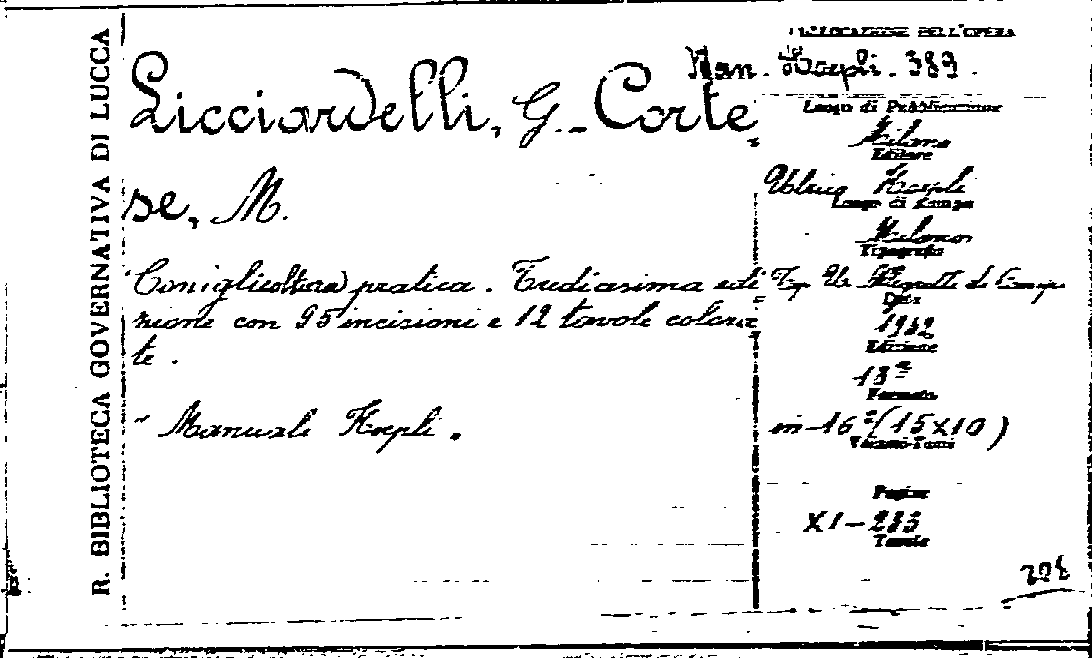 R. BIBLIOTECA GOVERNATIVA DI LUCCA
Licciardelli, G. - Corte
se, M.
Coniglicoltura pratica. Tredicesima edi
zione con 95 incisioni e 12 tavole colora
te.
" Manuali Hoepli.
COLLOCAZIONE DELL'OPERA
Man. Hoepli. 389.
Luogo di Pubblicazione
Milano
Editore
Ulrico Hoepli
Luogo di Stampa
Milano
Tipografia
Tip. U. di
Data
Edizione
13ª
Formato
in-16°(15x10)
Volumi-Tomi
Pagine
XI-283
Tavole